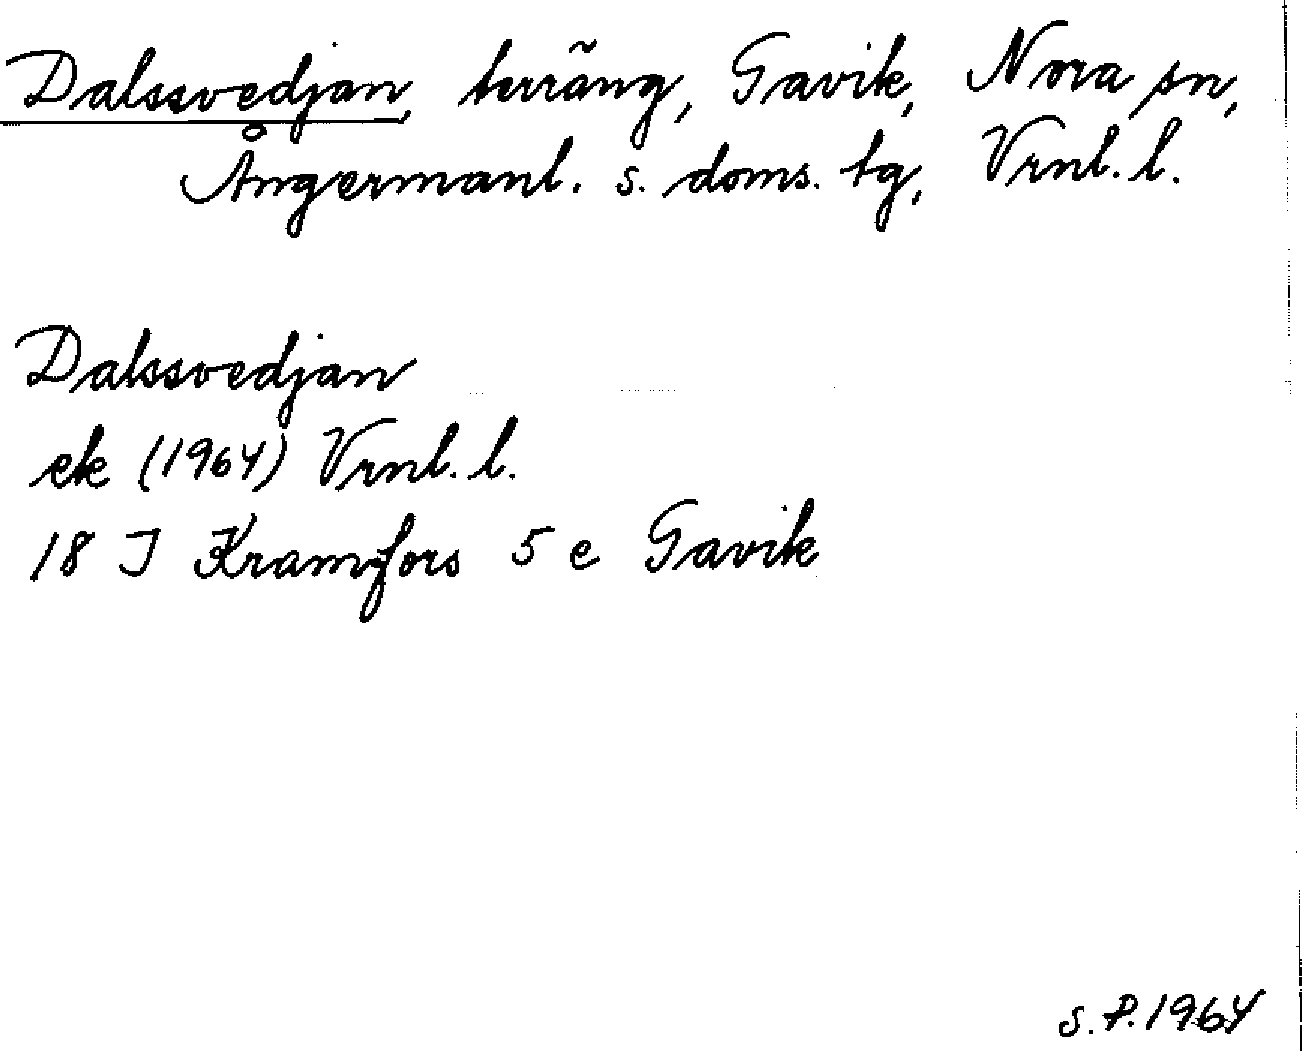 Dalssvedjan, terräng, Gavik, Nora sn,
Ångermanl. s. doms. tg, Vrnl. l.
Dalssvedjan
ek (1964) Vrnl. l.
18 J Kramfors 5 e Gavik
S. P. 1964